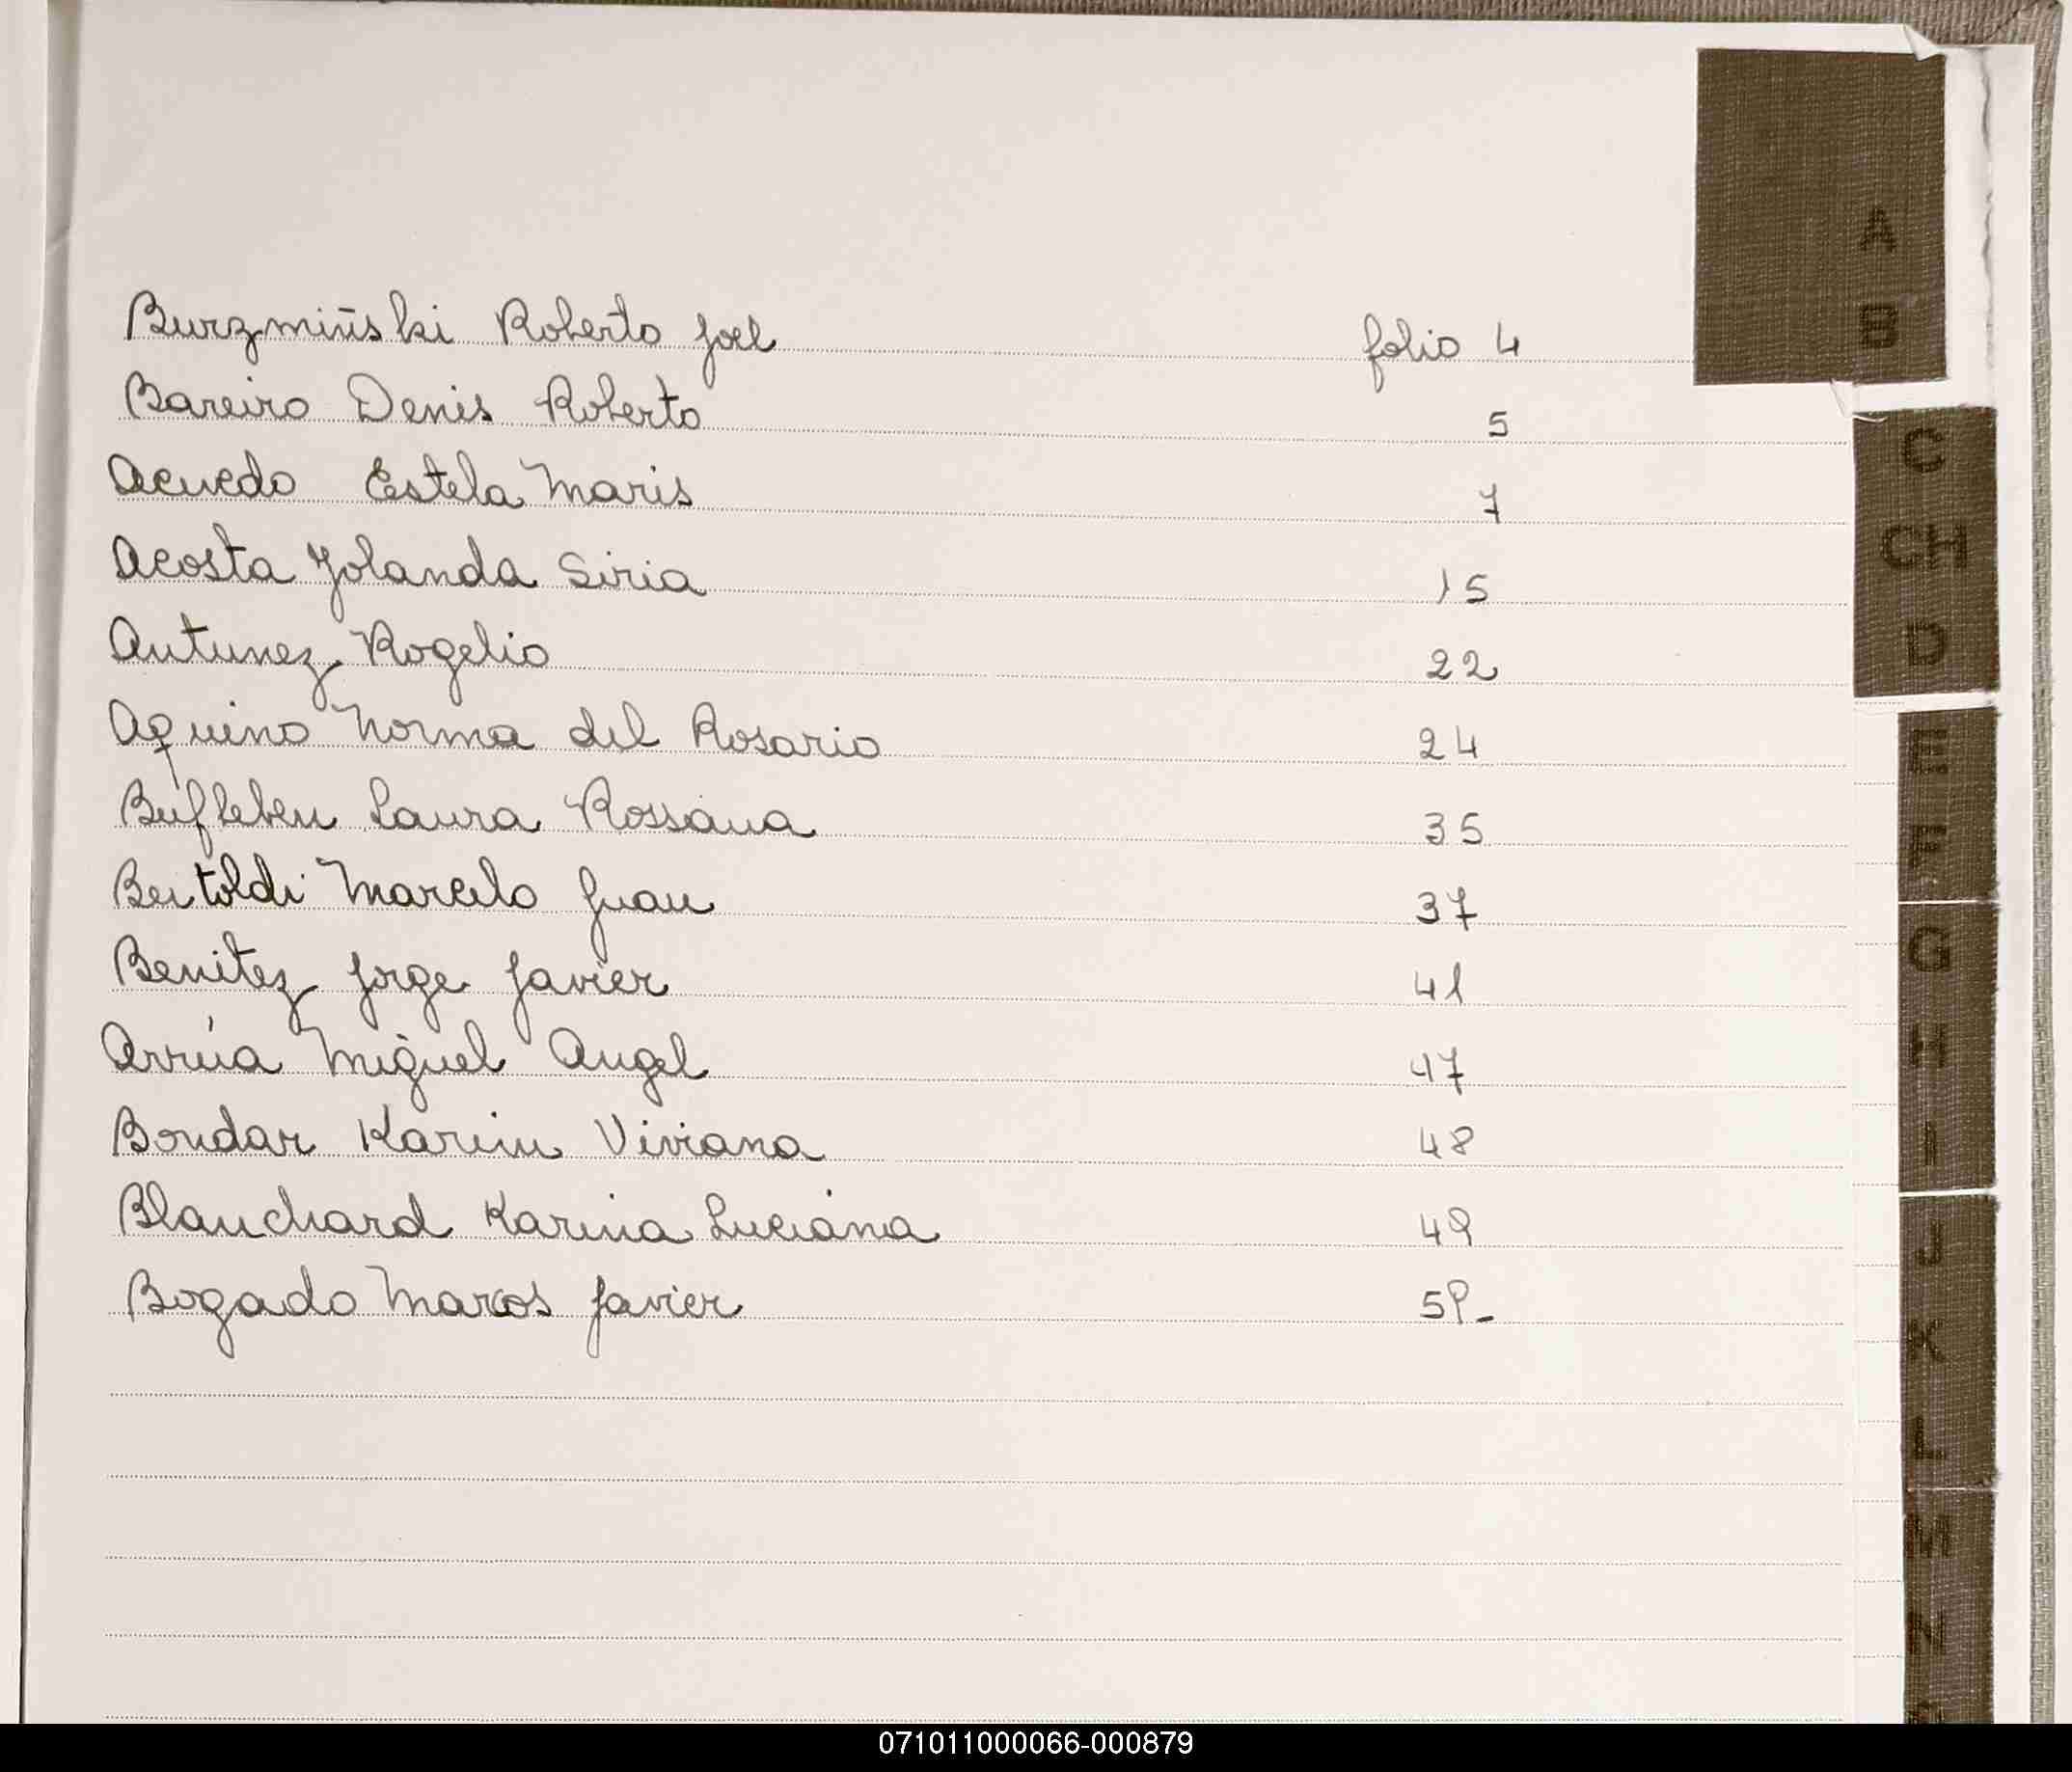 Burzmiñski Roberto Joel folio 4
Bareiro Denis Roberto 5
Acevedo Estela Maris 7
Acosta Yolanda Siria 15
Antunez Rogelio 22
Aquino Norma del Rosario 24
Laura Rossana 35
Bertoldi Marcelo Juan 37
Benitez Jorge Javier 41
Arrúa Miguel Angel 47
Bondar Karim Viviana 48
Blanchard Karina Luciana 49
Bogado Marcos Javier
A
B
C
CH
D
E
F
G
H
I
J
K
L
M
N
071011000066-000879